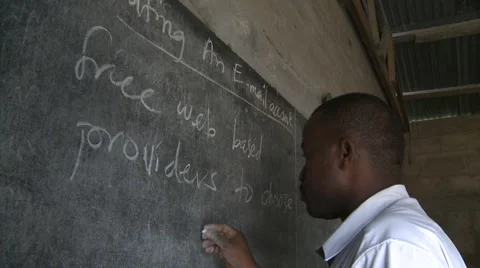 ating An E-mail account
free web based
providers to choose